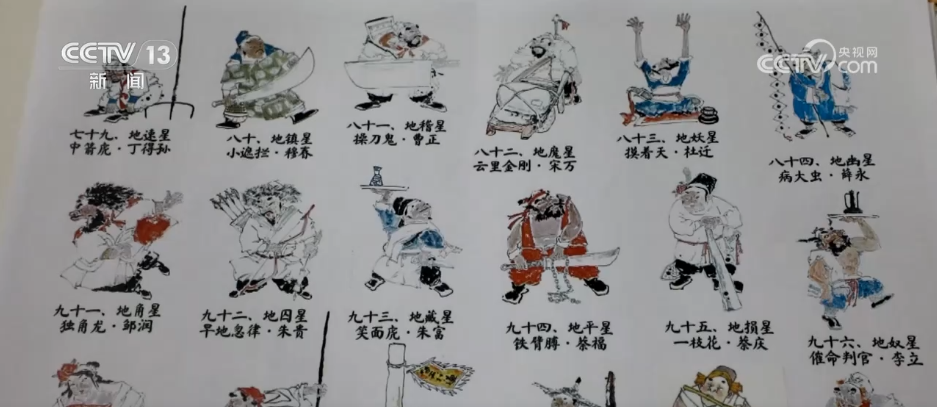 CCTV 13
新闻
央视网
CCTV.com
七十九、地速星
中箭虎·丁得孙
八十、地镇星
小遮拦·穆春
八十一、地稽星
操刀鬼·曹正
八十二、地魔星
云里金刚·宋万
八十三、地妖星
摸着天·杜迁
八十四、地幽星
病大虫·薛永
九十一、地角星
独角龙·邹润
九十二、地囚星
旱地忽律·朱贵
九十三、地藏星
笑面虎·朱富
九十四、地平星
铁臂膊·蔡福
九十五、地损星
一枝花·蔡庆
九十六、地奴星
催命判官·李立